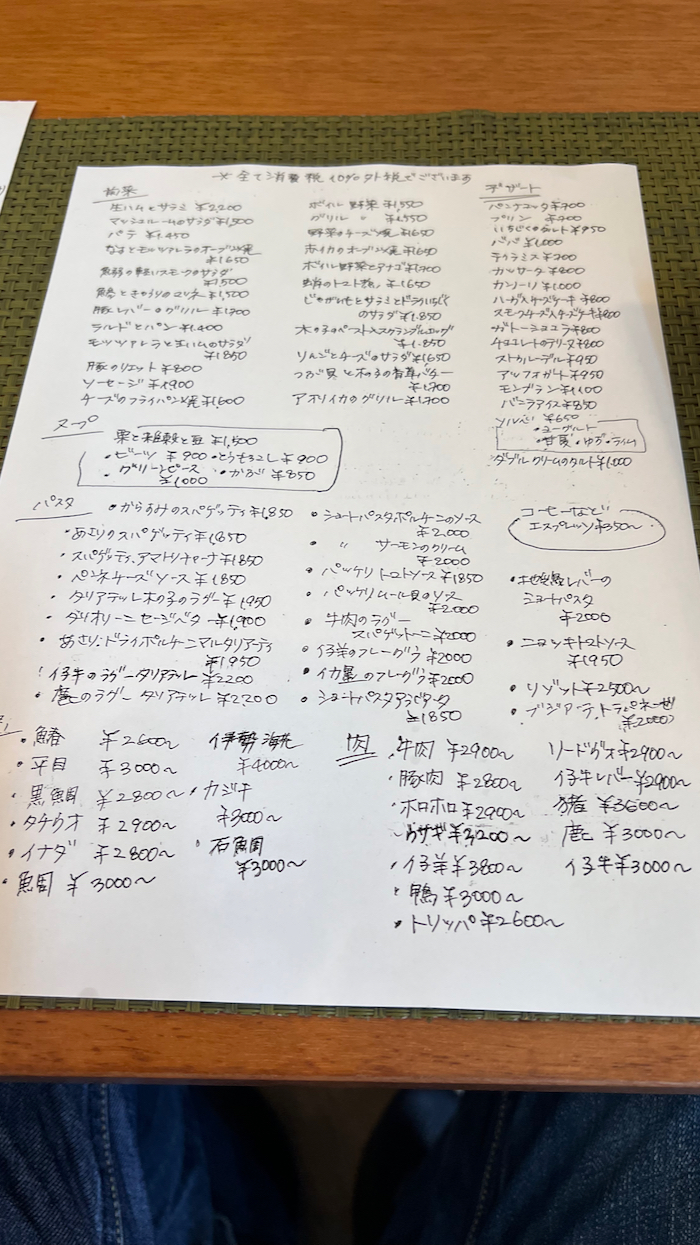 ※ 全て消費税10%外税でございます
前菜
生ハムとサラミ ¥2,200
マッシュルームのサラダ ¥1,500
パテ ¥1,450
なすとモッツァレラのオーブン焼
¥1650
軽いスモークのサラダ
¥1,500
ときゅうりのマリネ ¥1,500
豚レバーのグリル ¥1700
ラルドとパン ¥1,400
モッツァレラと生ハムのサラダ
¥1850
豚のリエット ¥800
ソーセージ ¥1900
チーズのフライパン焼 ¥1,600
ボイル野菜 ¥1,550
グリル 〃 ¥1,550
野菜のチーズ焼 ¥1650
ホイカのオーブン焼 ¥1650
ボイル野菜とアナゴ ¥1700
のトマト煮 ¥1650
じゃがいもとサラミとドライいちじく
のサラダ ¥1,850
木の子のペースト入スクランブルエッグ
¥1,850
りんごとチーズのサラダ ¥1650
つぶ貝と木の子の香草バター
¥1,700
アオリイカのグリル ¥1,700
デザート
パンナコッタ ¥700
プリン ¥700
いちじくのタルト ¥950
ババ ¥1,000
テラミス ¥700
カッサータ ¥800
カンノーリ ¥1,000
ハーブ入チーズケーキ ¥800
スモークチーズ入チーズケーキ ¥800
ガトーショコラ ¥800
チョコレートのテリーヌ ¥800
ストゥルーデル ¥950
アッフォガート ¥950
モンブラン ¥1,100
バニラアイス ¥850
ソルベ ¥650
・ヨーグルト
・甘夏・ゆず・ライム
ダブルクリームのタルト ¥1,000
スープ
栗と雑穀と豆 ¥1,500
・ビーツ ¥900 ・とうもろこし ¥900
・グリーンピース ・かぶ ¥850
¥1000
パスタ
・からすみのスパゲッティ ¥1,850
・あさりのスパゲッティ ¥1850
・スパゲッティ、アマトリチャーナ ¥1850
・ペンネチーズソース ¥1850
・タリアテッレ木の子のラグー ¥1,950
・タリオリーニ セージバター ¥1,900
・あさり・ドライポルチーニ マルタリアーティ
¥1,950
仔牛のラグータリアテッレ ¥2200
・鹿のラグー タリアテッレ ¥2,200
・ショートパスタ、ポルチーニのソース
¥2,000
・ 〃 サーモンのクリーム
¥2000
・パッケリトマトソース ¥1850
・パッケリムール貝のソース
¥2,000
・牛肉のラグー
スパゲットーニ ¥2000
・仔羊のフレーグラ ¥2000
・イカ墨のフレーグラ ¥2000
・ショートパスタアラビアータ
¥1850
コーヒーなど
エスプレッソ ¥350〜
・地鶏レバーの
ショートパスタ
¥2000
・ニョッキトマトソース
¥1950
・リゾット ¥2500〜
・ブジアーテ、トラパネーゼ
(¥2000)
・鰆 ¥2600〜
・平目 ¥3000〜
・黒鯛 ¥2800〜
・タチウオ ¥2900〜
・イナダ ¥2800〜
・鯛 ¥3000〜
伊勢海老
¥4000〜
・カジキ
¥3000〜
・石鯛
¥3000〜
肉
・牛肉 ¥2900〜
・豚肉 ¥2800〜
・ホロホロ ¥2900〜
・ウサギ ¥3,200〜
・仔羊 ¥3800〜
・鴨 ¥3000〜
・トリッパ ¥2600〜
リードヴォ ¥2900〜
仔牛レバー ¥2900〜
猪 ¥3600〜
鹿 ¥3000〜
仔牛 ¥3000〜